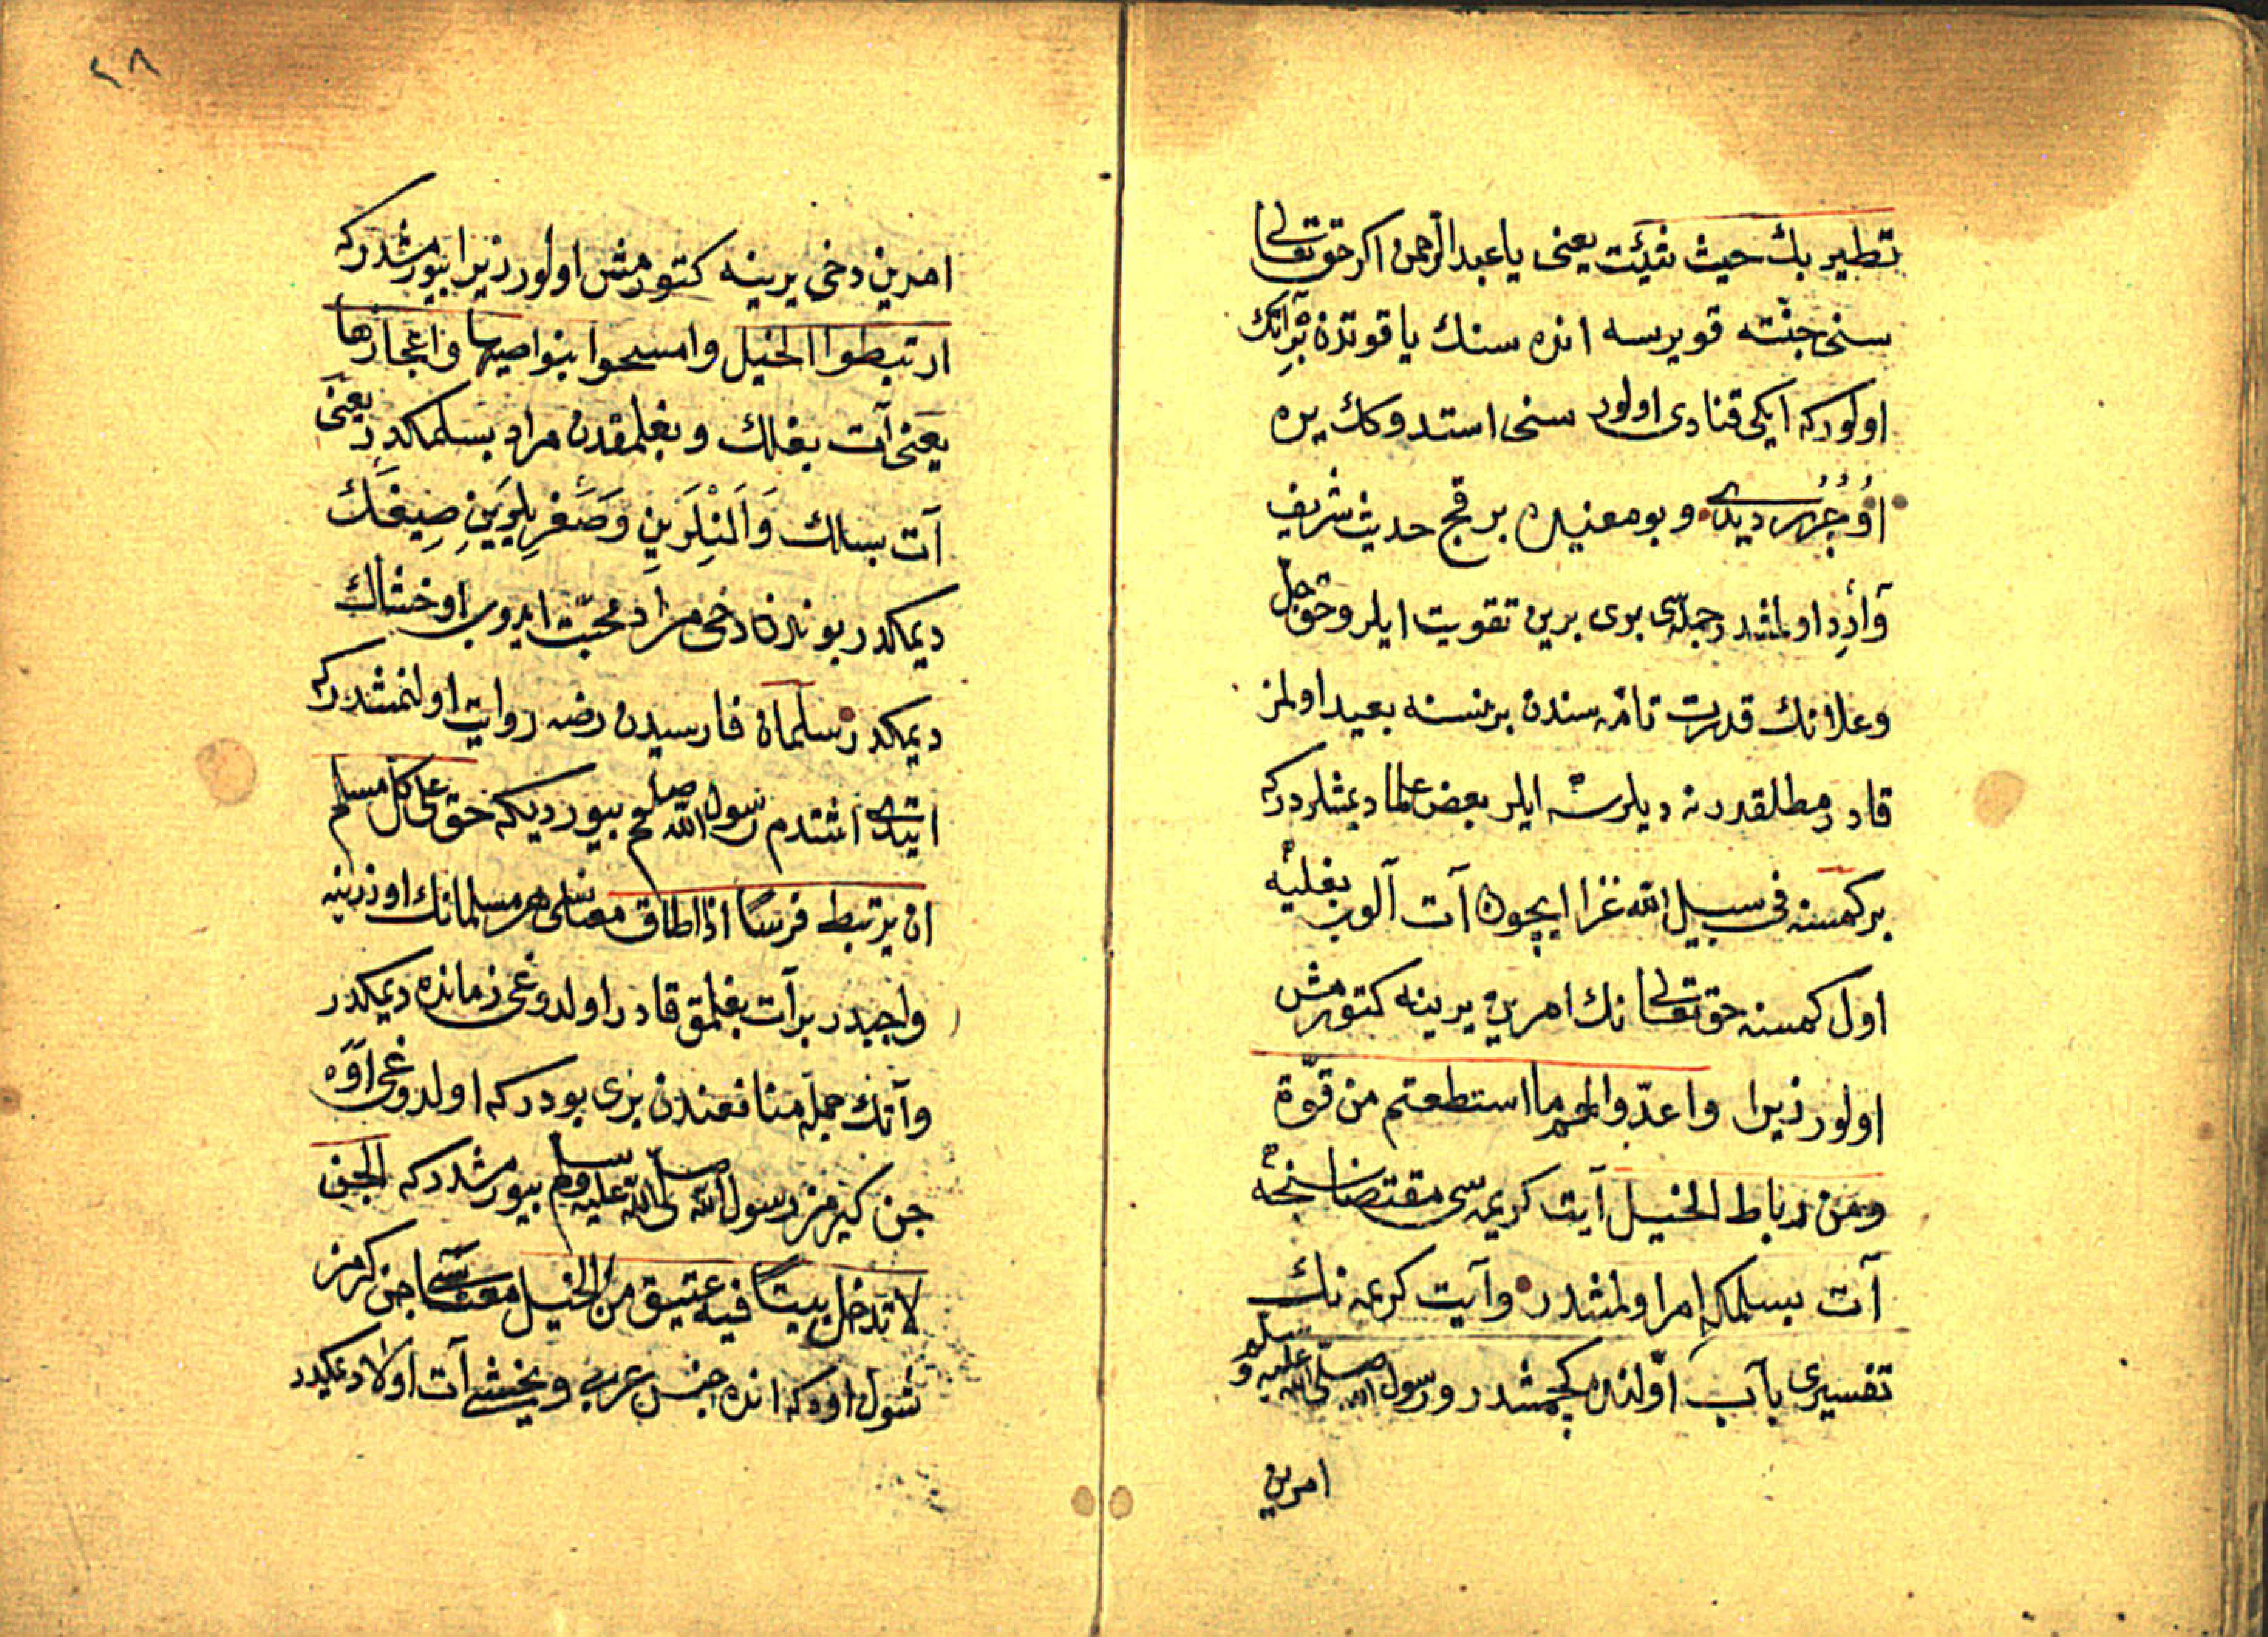 تطير بك حيث شئت يعنى يا عبد الرحمن اكر حق تعالى
سنى جنّته قويرسه انده سنك ياقوتدن بر آتك
اولور كه ايكى قنادى اولور سنى استدوكك يره
اوُجُرُر ديدى و بو معنيده بر قچ حديث شريف
وآرد اولمشدر جمله سى برى برين تقويت ايلر وحق جل
وعلانك قدرت تامّه سندن بر نسنه بعيد اولمز
قادر مطلقدر نه ديلرسه ايلر بعض علما ديمشلردر كه
بر كمسنه فى سبيل الله غزا ايچون آت آلوب بغليه
اول كمسنه حق تعالى نك امرين يرينه كتورمش
اولور زيرا واعدّوا لهم ما استطعتم من قوّة
ومن رباط الخيل آيت كريمه سى مقتضاسنجه
آت بسلمكه امر اولمشدر وآيت كريمه نك
تفسيرى بآب اوّلنده كچمشدر ورسول الله صلى الله عليه وسلم
امرين
٢٨
امرين دخى يرينه كتورمش اولور زيرا بيورمشدر كه
ارتبطوا الخيل وامسحوا بنواصيها واعجازها
يعنى آت بغلك و بغلمقدن مراد بسلمكدر يعنى
آت بسلك وَالنلرين وَصَغريلرين صِيغَك
ديمكدر بوندن دخى مراد محبّت ايدوب اوخشاك
ديمكدر سلمان فارسيدن رضه روايت اولنمشدر كه
ايتدى اشتدم رسول الله صلعم بيورديكه حق على كل مسلم
ان يرتبط فرسًا اذا اطاق معناسى هر مسلمانك اوزرينه
واجبدر بر آت بغلمق قادر اولدوغى زمانده ديمكدر
وآتك جمله منافعندن برى بودر كه اولدوغى اَوَه
جن كيرمز رسول الله صلى الله عليه وسلم بيورمشدر كه الجن
لا تدخل بيتًا فيه عتيق من الخيل معناسى جن كرمز
شول اوه كه انده جنس عربى و يخشى آت اولا ديمكدر